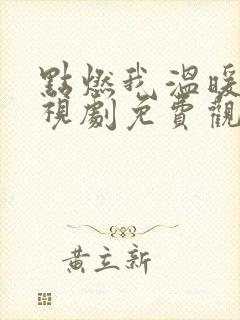 點燃我 溫暖
視劇免費觀
黃立新